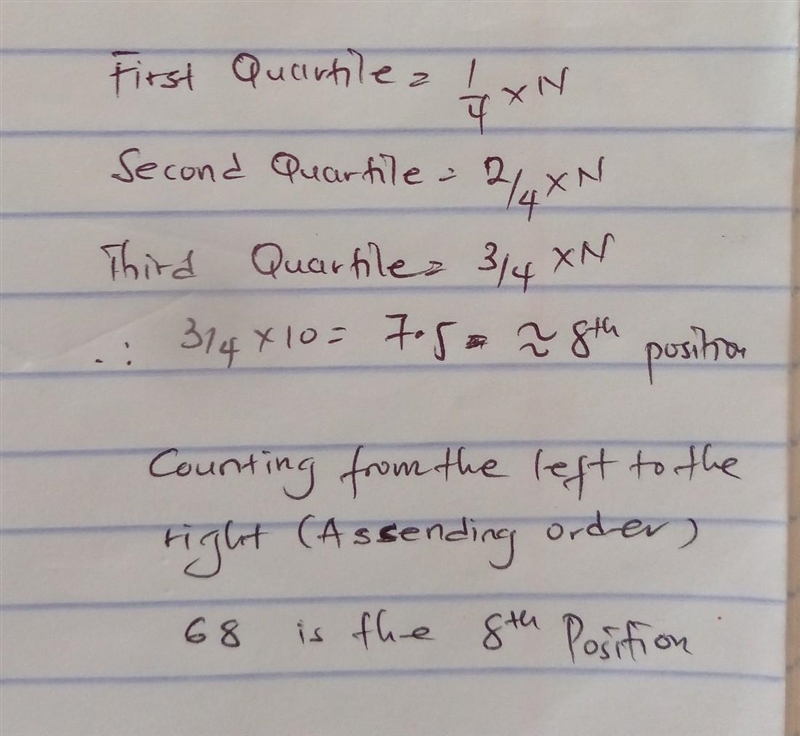 First Quartile = 1/4 × N
Second Quartile = 2/4 × N
Third Quartile = 3/4 × N
∴ 3/4 × 10 = 7.5 ≈ 8th position
Counting from the left to the
right (Assending order)
68 is the 8th Position